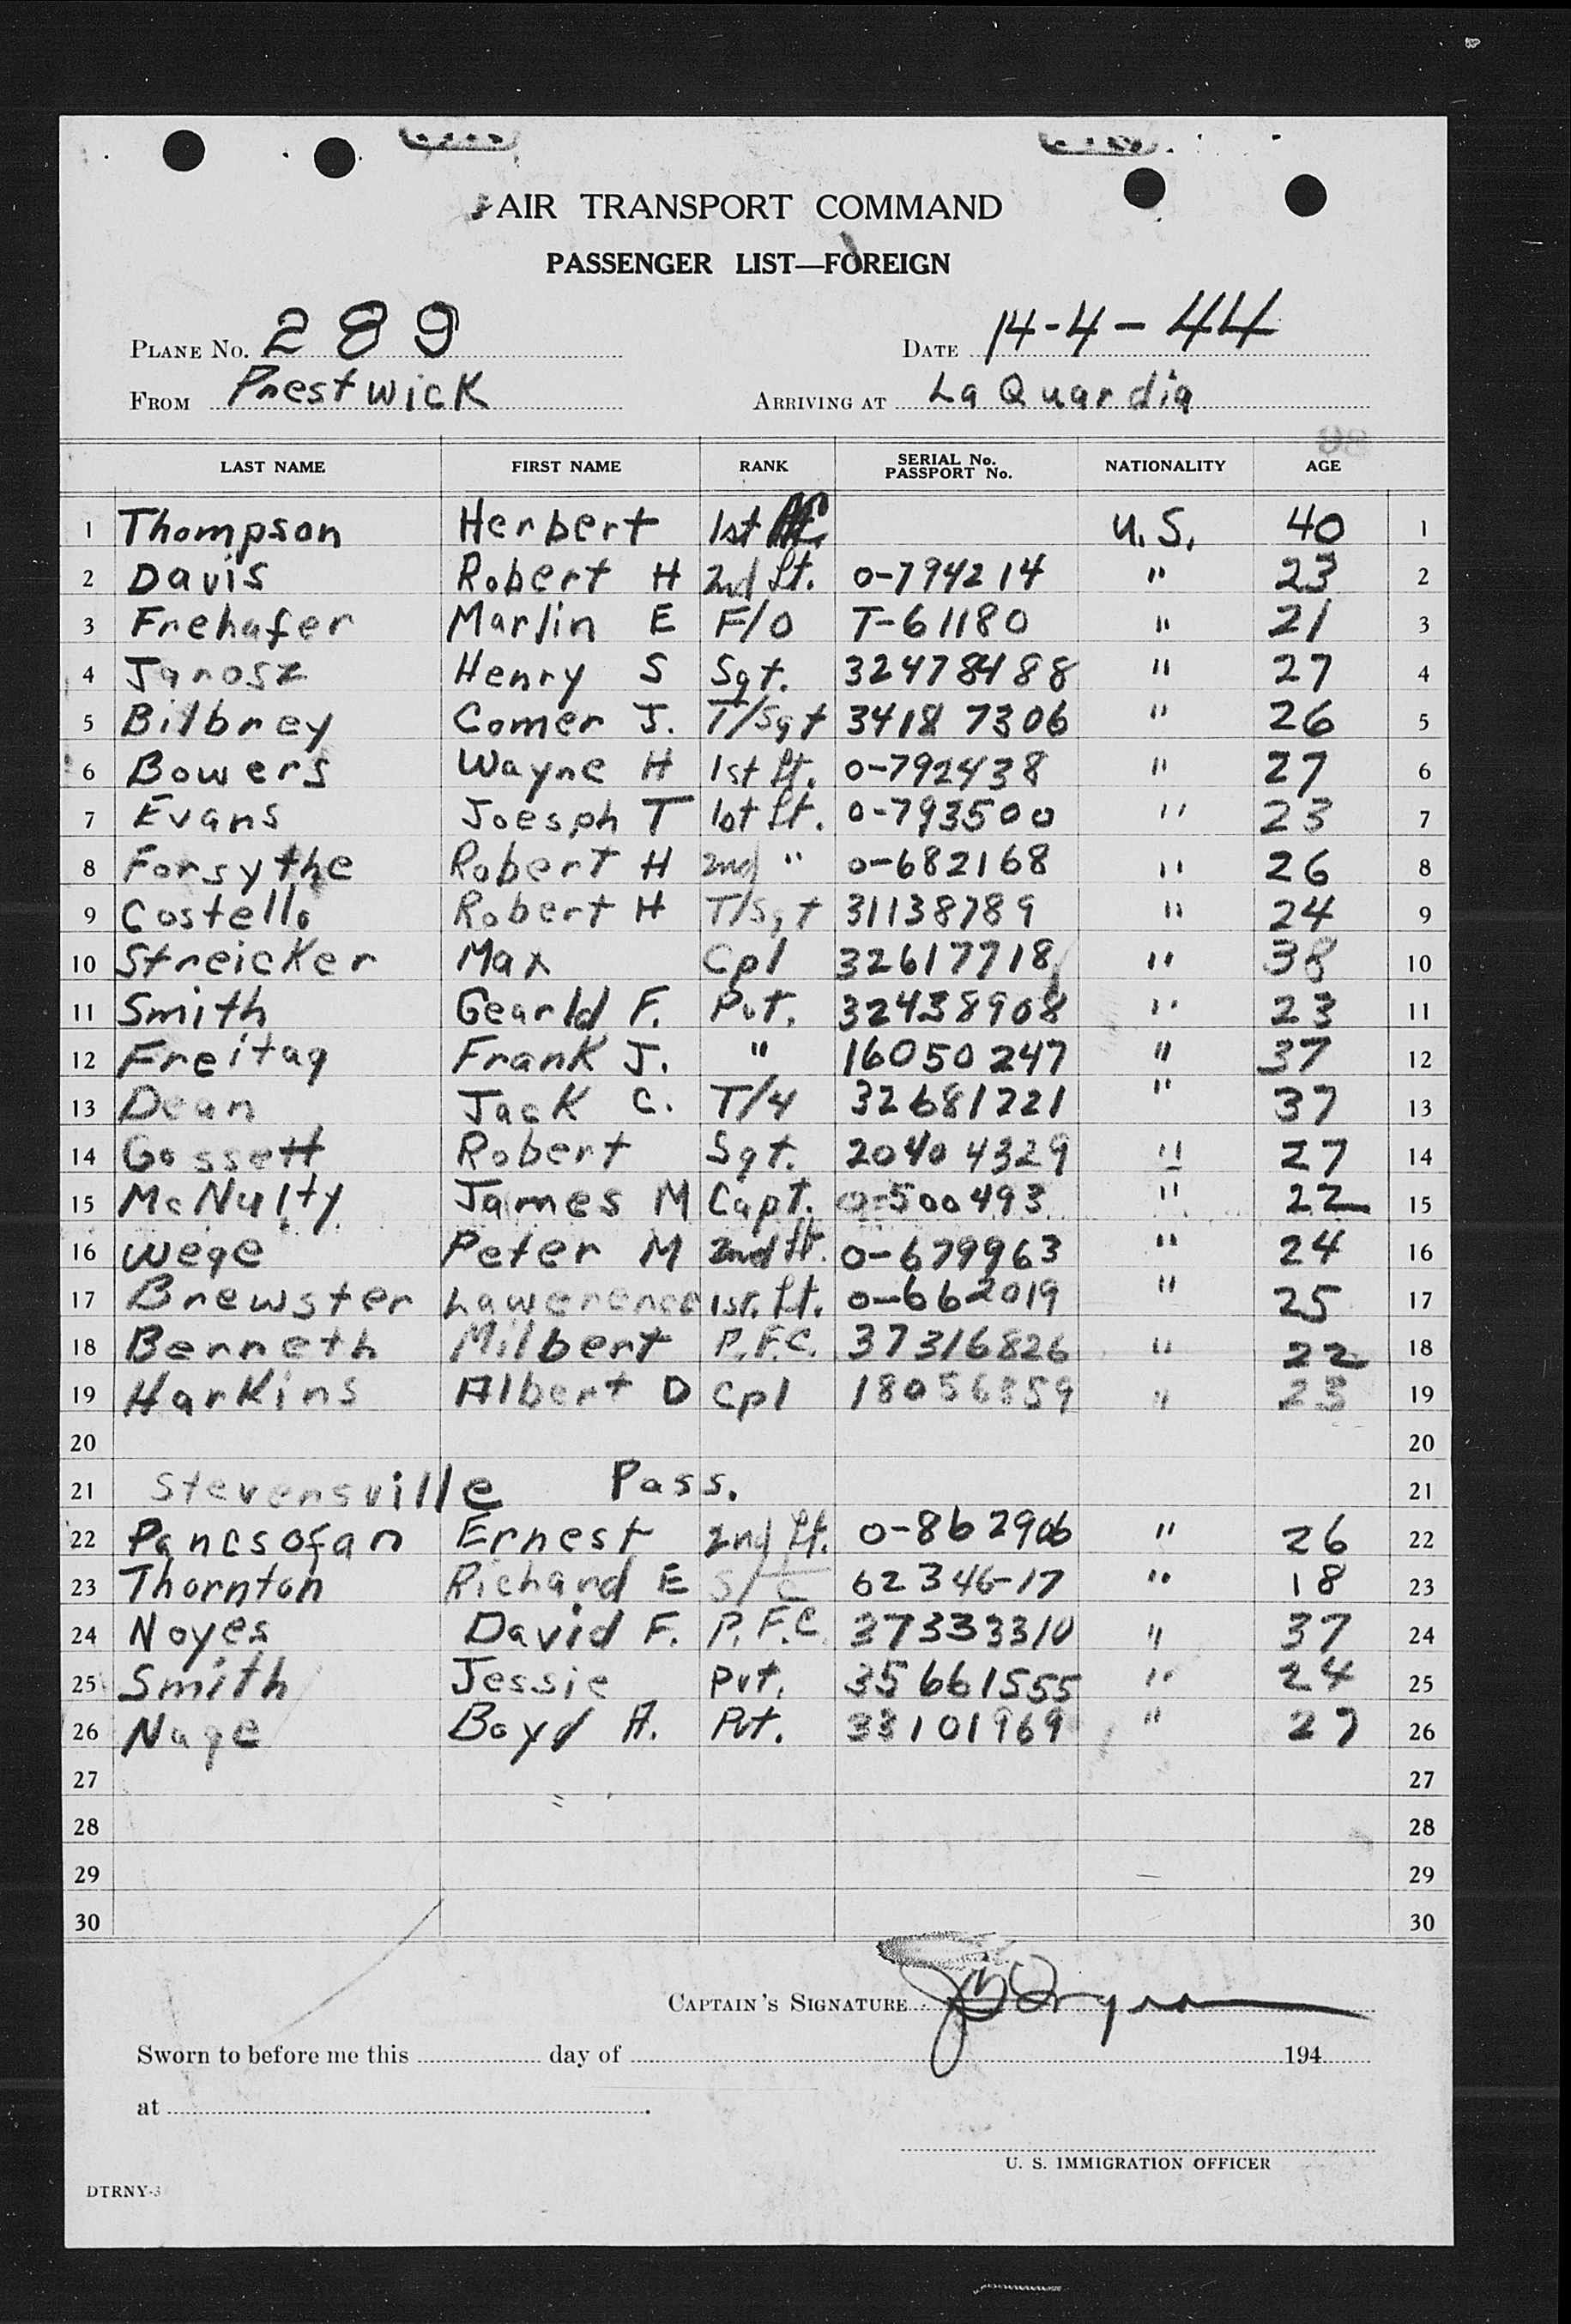 AIR TRANSPORT COMMAND
PASSENGER LIST—FOREIGN
PLANE No. 289 DATE 14-4-44
FROM Prestwick ARRIVING AT La Quardia
LAST NAME FIRST NAME RANK SERIAL No. PASSPORT No. NATIONALITY AGE
1 Thompson Herbert 1st U.S. 40 1
2 Davis Robert H 2nd Lt. 0-794214 " 23 2
3 Frehafer Marlin E F/O T-61180 " 21 3
4 Jarosz Henry S Sgt. 32478488 " 27 4
5 Bilbrey Comer J. T/Sgt 34187306 " 26 5
6 Bowers Wayne H 1st Lt. 0-792438 " 27 6
7 Evans Joesph T 1st Lt. 0-793500 " 23 7
8 Forsythe Robert H 2nd " 0-682168 " 26 8
9 Costello Robert H T/Sgt 31138789 " 24 9
10 Streicker Max Cpl 32617718 " 38 10
11 Smith Gearld F. Pvt. 32438908 " 23 11
12 Freitag Frank J. " 16050247 " 37 12
13 Dean Jack C. T/4 32681221 " 37 13
14 Gossett Robert Sgt. 20404329 " 27 14
15 McNulty James M Capt. 0-500493 " 22 15
16 Wege Peter M 2nd Lt. 0-679963 " 24 16
17 Brewster Lawerence 1st. Lt. 0-662019 " 25 17
18 Berneth Milbert P.F.C. 37316826 " 22 18
19 Harkins Albert D Cpl 18056859 " 23 19
20 20
21 Stevensville Pass. 21
22 Pancsofan Ernest 2nd Lt. 0-862906 " 26 22
23 Thornton Richard E S/C 62346-17 " 18 23
24 Noyes David F. P.F.C. 37333310 " 37 24
25 Smith Jessie Pvt. 35661555 " 24 25
26 Nage Boyd A. Pvt. 38101969 " 27 26
27 27
28 28
29 29
30 30
CAPTAIN'S SIGNATURE
Sworn to before me this day of 194
at .
U. S. IMMIGRATION OFFICER
DTRNY-3